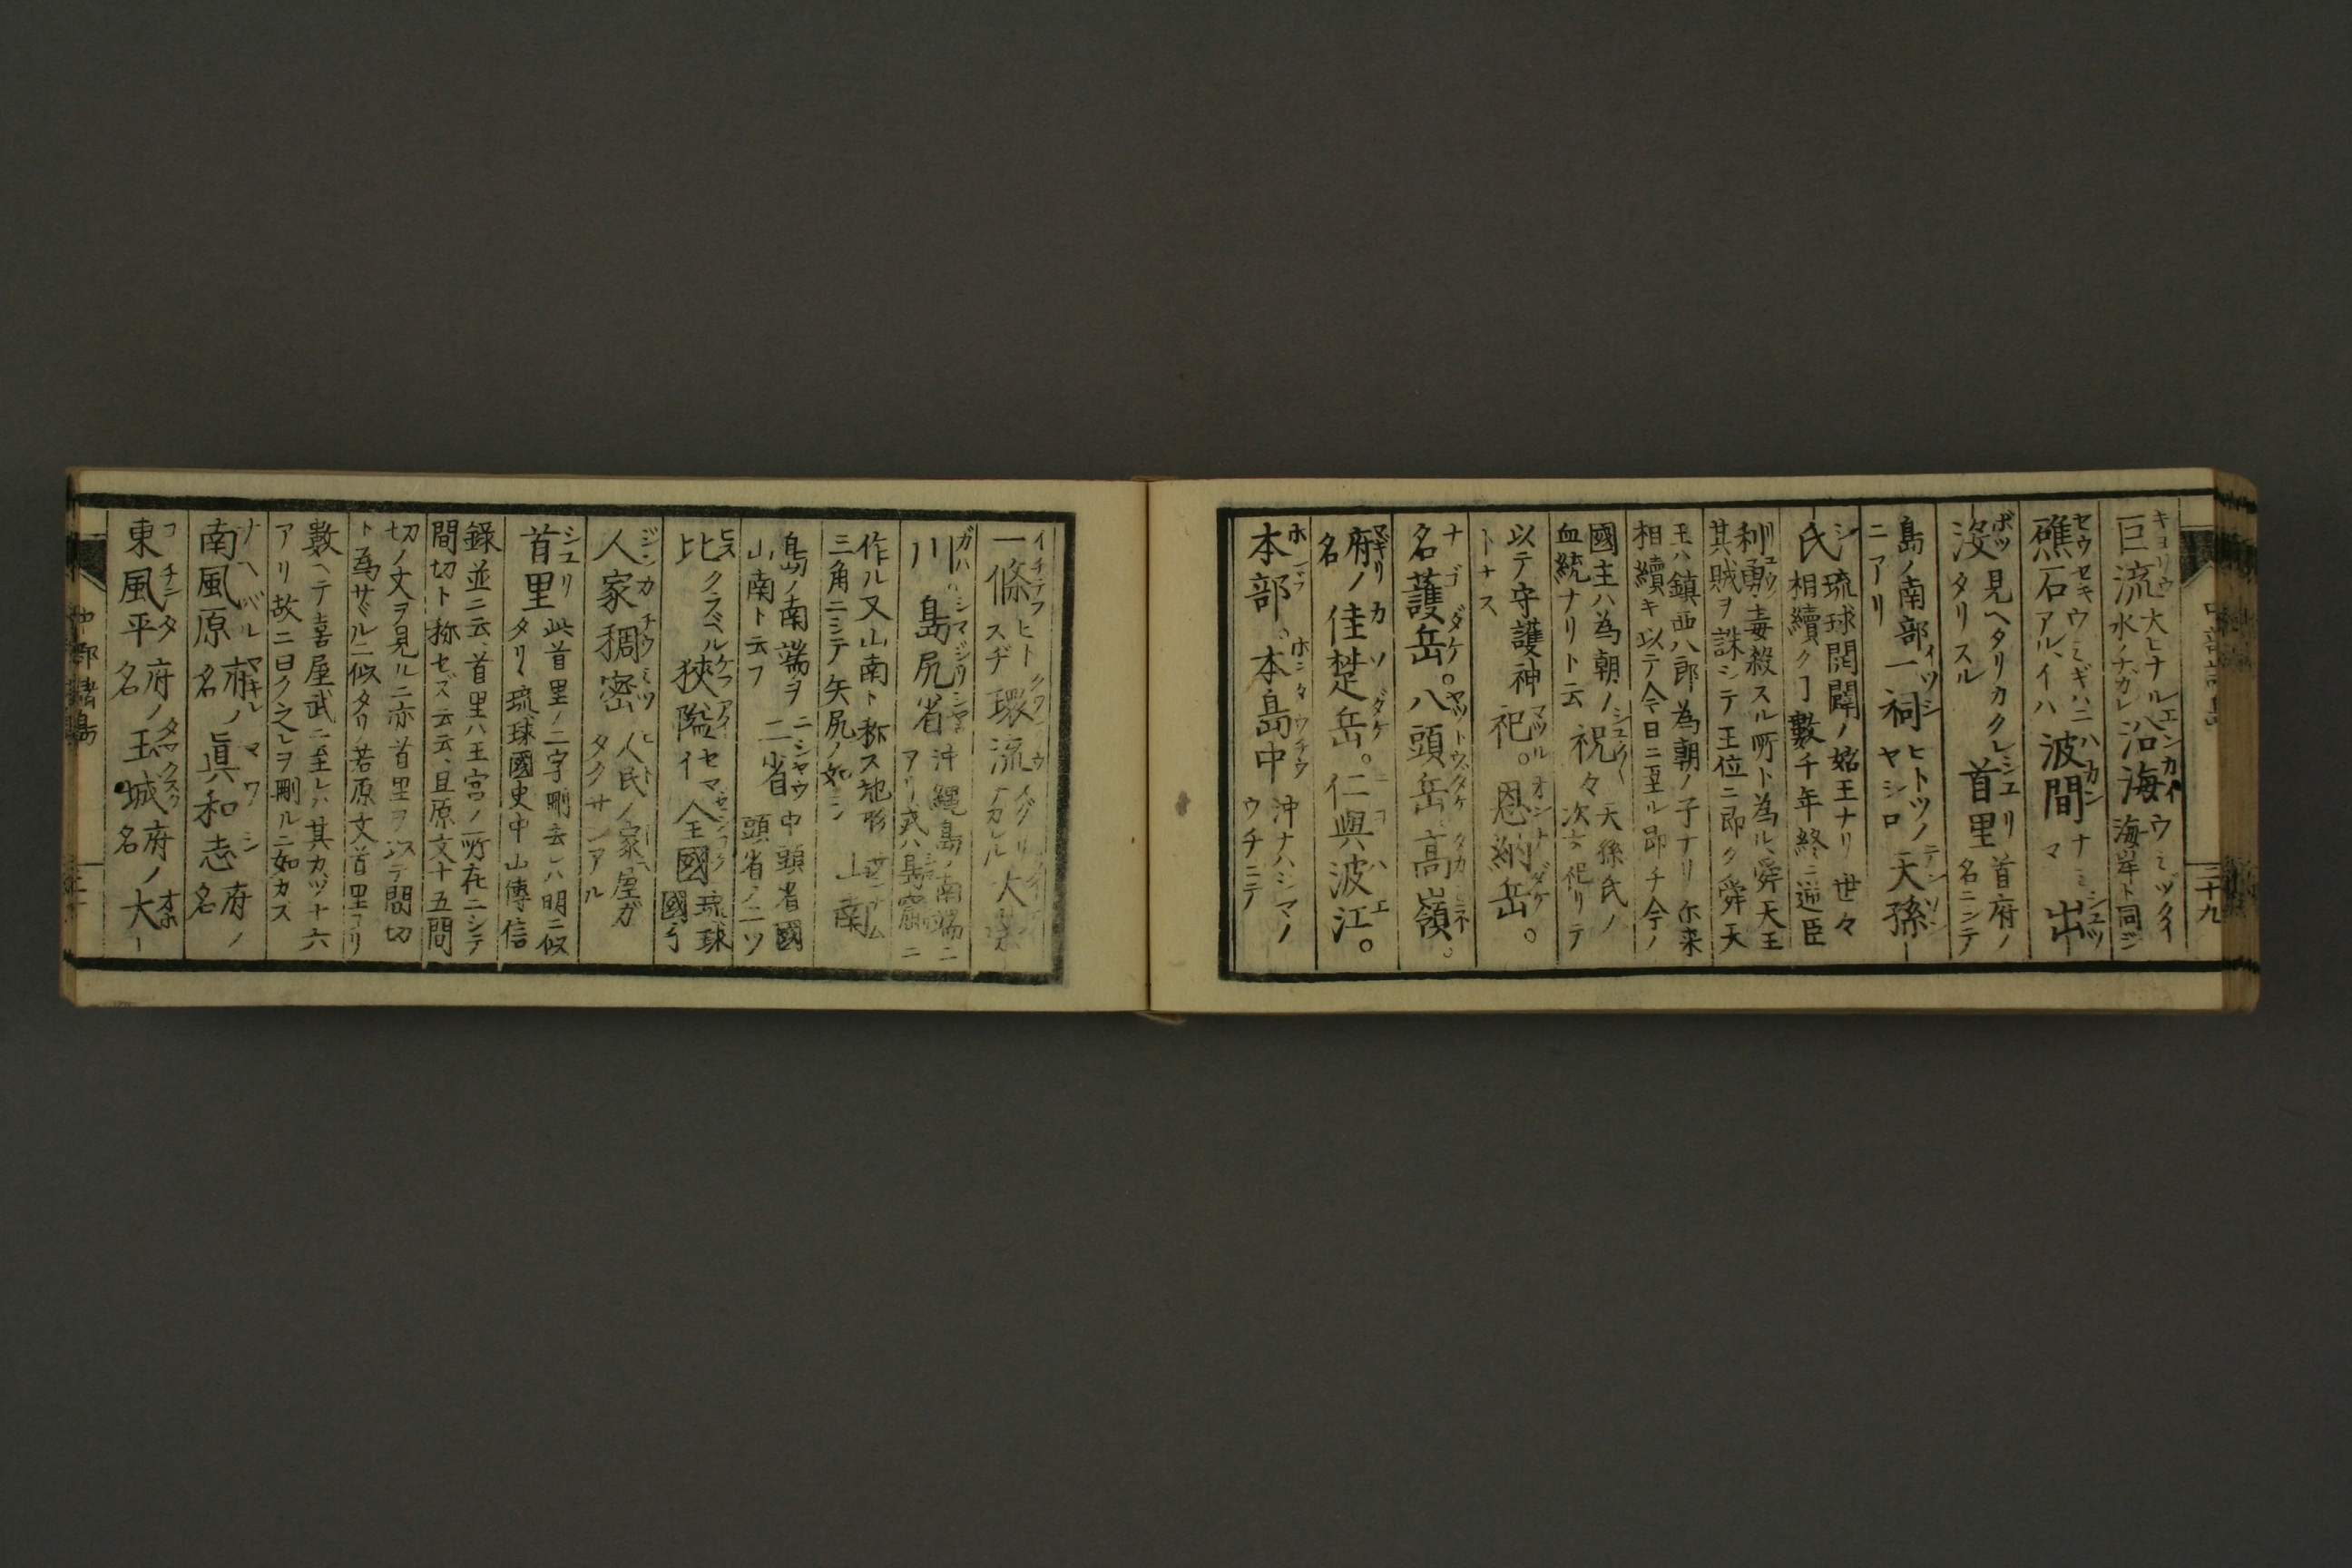 三十九
巨流 大ヒナル水ノナガレ 沿海 ウミヅタイ海岸ト同ジ
礁石 ウミギハニアルイハ 波間 ナミマ 出
沒 見ヘタリカクレタリスル 首里 首府ノ名ニシテ
島ノ南部ニアリ 一祠 ヒトツノヤシロ 天孫
氏 琉球開闢ノ始王ナリ世々相續クヿ數千年終ニ逆臣
利勇毒殺スル所ト為ル、舜天王其賊ヲ誅シテ王位ニ即ク舜天
王ハ鎮西八郎為朝ノ子ナリ尓来相續キ以テ今日ニ至ル即チ今ノ
國主ハ為朝ノ血統ナリト云 祝々 天孫氏ノ次ニ祀リテ
以テ守護神トナス 祀。恩納岳。
名護岳。八頭岳高嶺。
府ノ名 佳楚岳。仁與波江。
本部。本島中 沖ナハシマノウチニテ
一條 ヒトスヂ 環流 メグリナガレル 大
川 島尻省 沖縄島ノ南端ニアリ或ハ島窟ニ
作ル又山南ト称ス地形三角ニシテ矢尻ノ如シ 山南
島ノ南端ヲ山南ト云フ 二省 中頭省國頭省ノ二ツ
比 クラベル 狹隘 セマイ 全國 琉球國
人家稠密 人民ノ家屋ガタクサンアル
首里 此首里ノ二字刪去レハ明ニ似タリ 琉球國史中山傳信
錄並ニ云首里ハ王宮ノ所在ニシテ間切ト称セズ云云、且原文十五間
切ノ文ヲ見ルニ亦首里ヲ以テ間切ト為サヾルニ似タリ若原文首里ヨリ
數ヘテ喜屋武ニ至レハ其カヅ十六アリ故ニ曰ク之レヲ刪ルニ如カス
南風原 府ノ名 眞和志 府ノ名
東風平 府ノ名 玉城 府ノ名 大
中部諸島